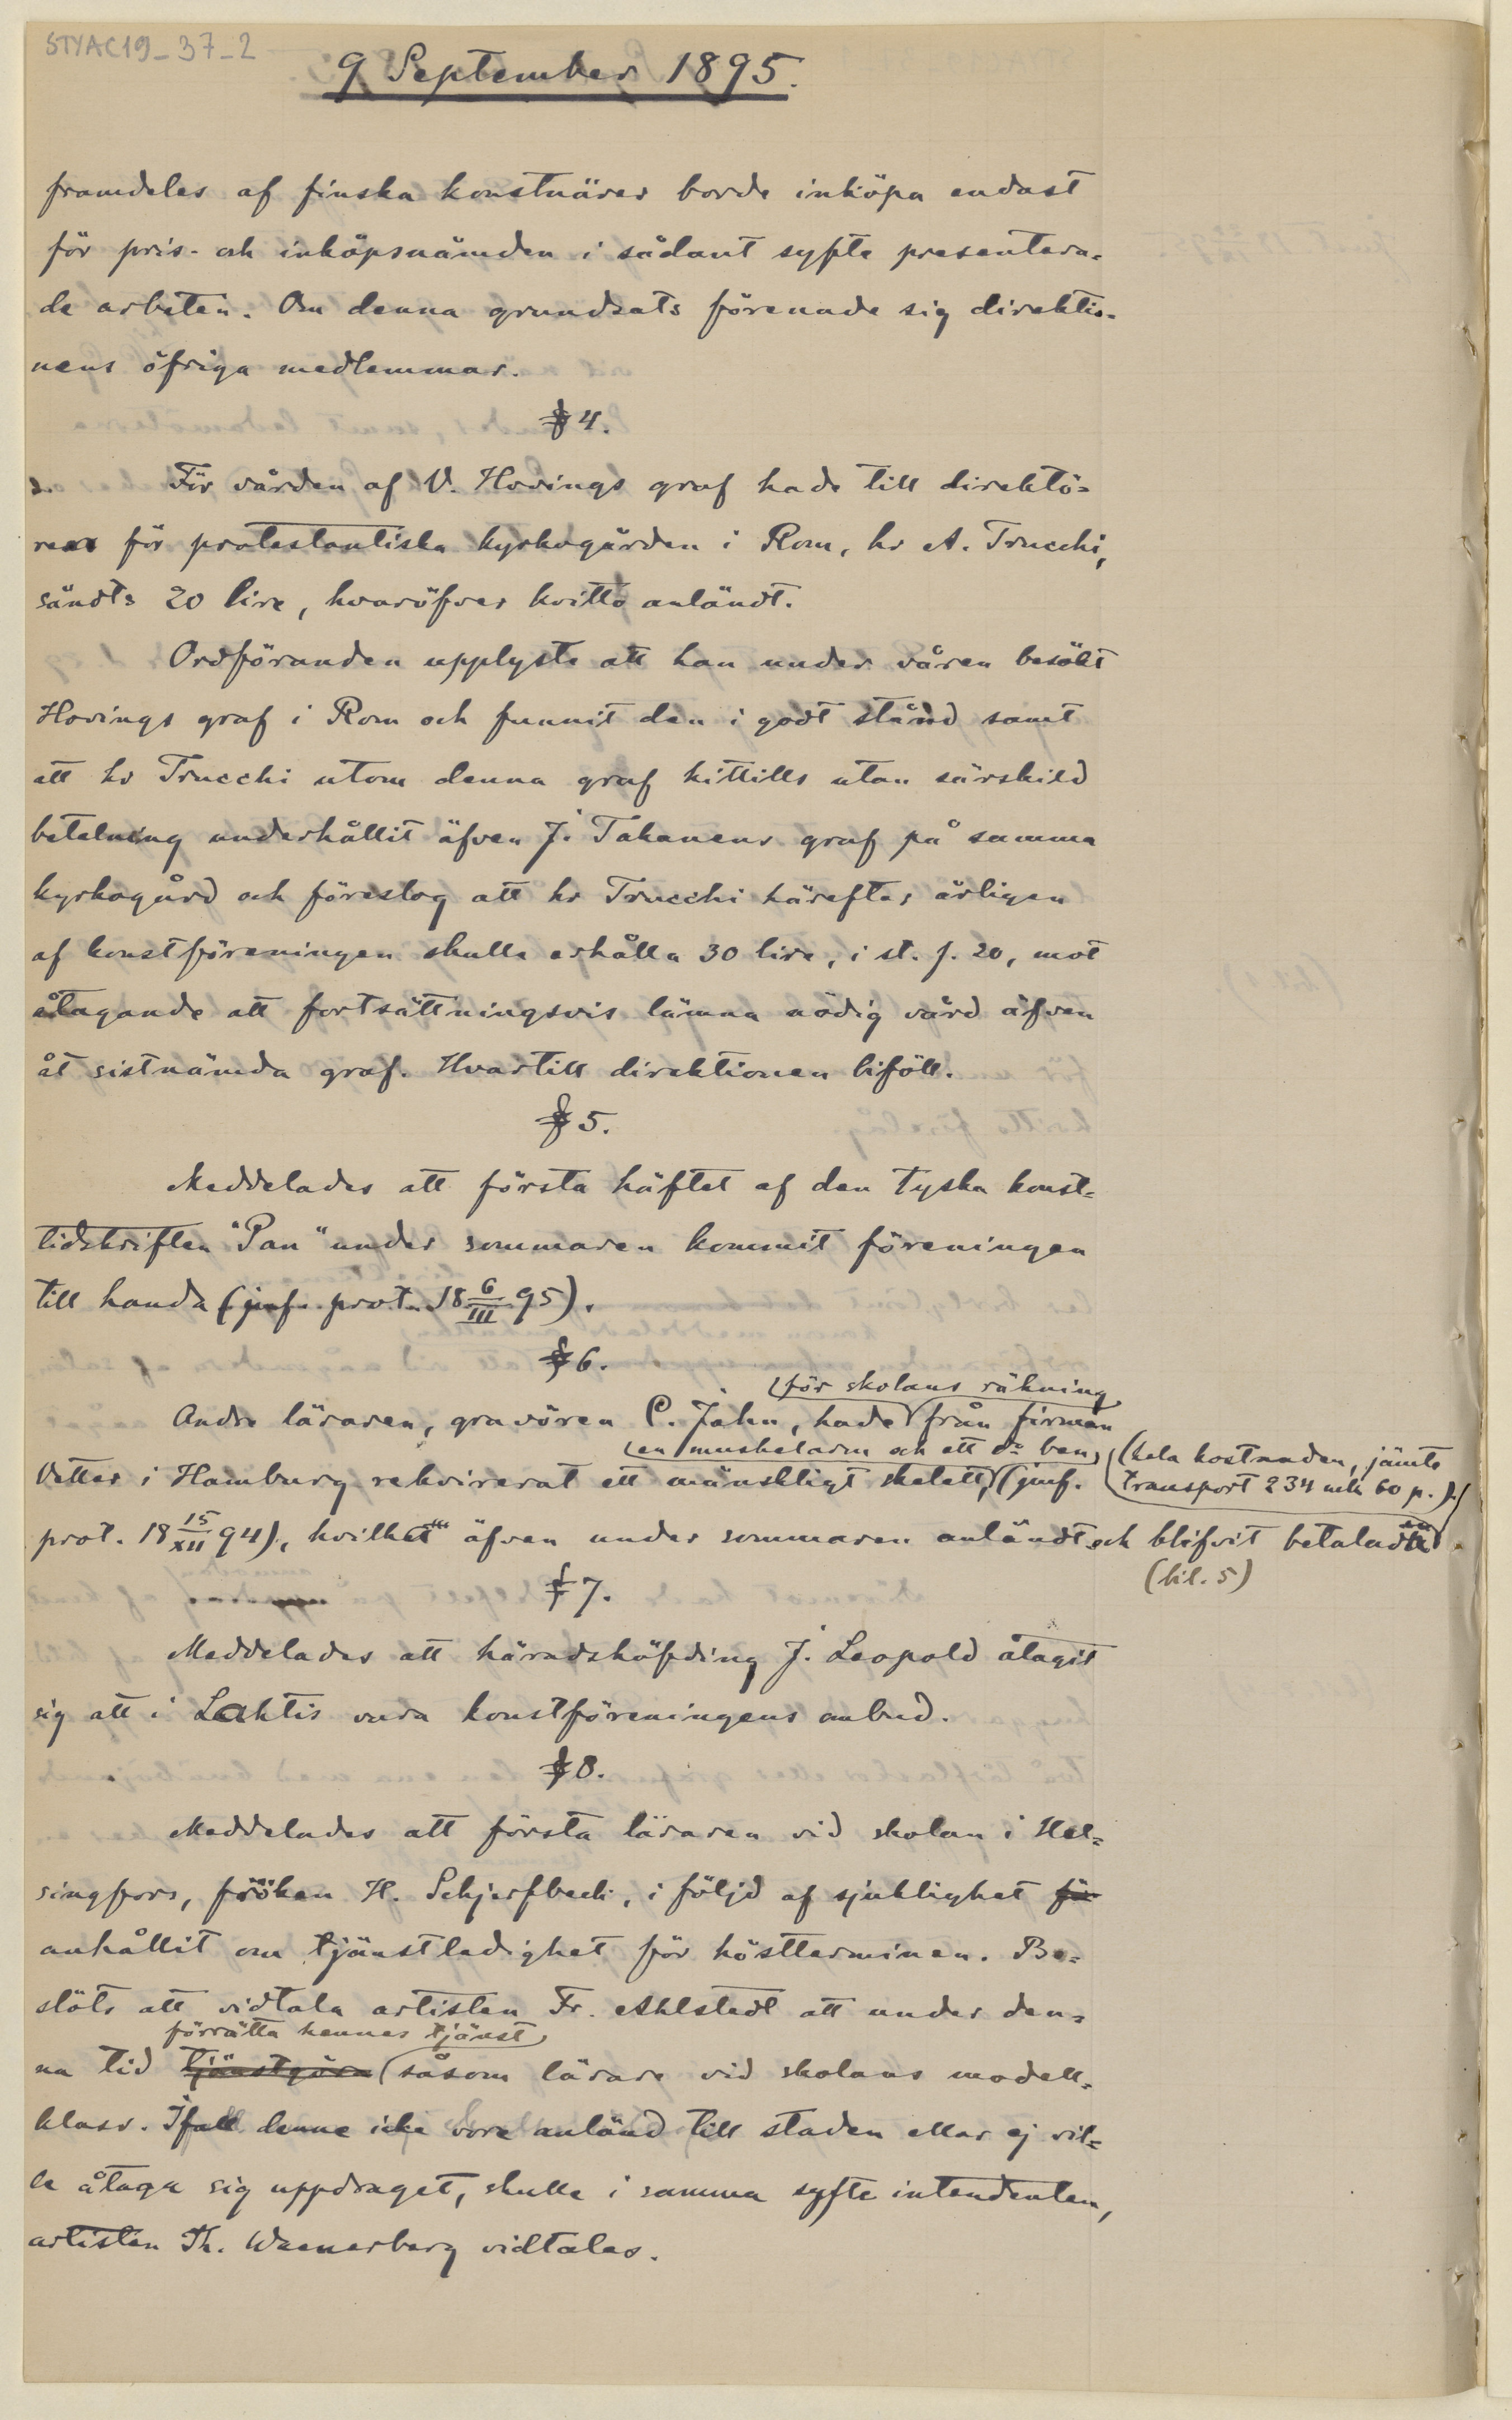 STYAC19_37_2
9 September 1895.
framdeles af finska konstnärer borde inköpa endast
för pris- och inköpsnämden i sådant syfte presentera-
de arbeten. Om denna grundsats förenade sig direktio-
nens öfriga medlemmar.
§ 4.
För vården af V. Hovings graf hade till direktö-
ren för protestantiska kyrkogården i Rom, hr A. Trucchi,
sändts 20 lire, hvaröfver kvitto anländt.
Ordföranden upplyste att han under våren besökt
Hovings graf i Rom och funnit den i godt stånd samt
att hr Trucchi utom denna graf hittills utan särskild
betalning underhållit äfven J. Takanens graf på samma
kyrkogård och föreslog att hr Trucchi härefter årligen
af konstföreningen skulle erhålla 30 lire, i st. f. 20, mot
åtagande att fortsättningsvis lämna nödig vård äfven
åt sistnämda graf. Hvartill direktionen biföll.
§ 5.
Meddelades att första häftet af den tyska konst-
tidskriften "Pan" under sommaren kommit föreningen
till handa (jmf. prot. 18 6/III 95).
§ 6.
för skolans räkning
Andre läraren, gravören C. Jahn, hade från firman
en muskelarm och ett do ben, (hela kostnaden, jämte
Vetter i Hamburg rekvirerat ett mänskligt skelett, (jmf. transport 234 mk 60 p.)
prot. 18 15/XII 94), hvilket äfven under sommaren anländt och blifvit betalad
(bil. 5)
§ 7.
Meddelades att häradshöfding J. Leopold åtagit
sig att i Lahtis vara konstföreningens ombud.
§ 8.
Meddelades att första läraren vid skolan i Hel-
singfors, fröken H. Schjerfbeck, i följd af sjuklighet för
anhållit om tjänstledighet för höstterminen. Be-
slöts att vidtala artisten Fr. Ahlstedt att under den-
förrätta hennes tjänst
na tid tjänstgöra såsom lärare vid skolans modell-
klass. Ifall denne icke vore anländ till staden eller ej vil-
le åtaga sig uppdraget, skulle i samma syfte intendenten,
artisten Th. Waenerberg vidtalas.